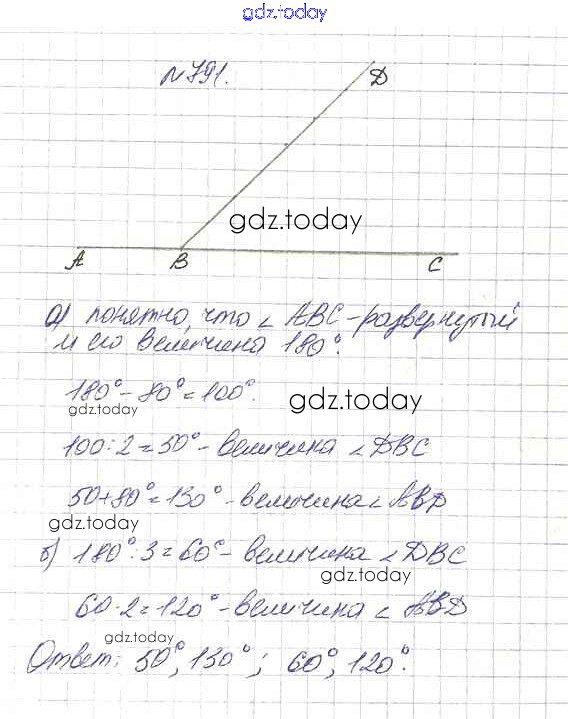 gdz.today
№791.
D
gdz.today
A B C
а) понятно, что ∠ ABC - развернутый
и его величина 180°.
180° - 80° = 100°.
gdz.today
gdz.today
100 : 2 = 50° - величина ∠ DBC
50 + 80° = 130° - величина ∠ ABD
gdz.today
б) 180° : 3 = 60° - величина ∠ DBC
gdz.today
60 · 2 = 120° - величина ∠ ABD
gdz.today
Ответ: 50°, 130° ; 60°, 120°.